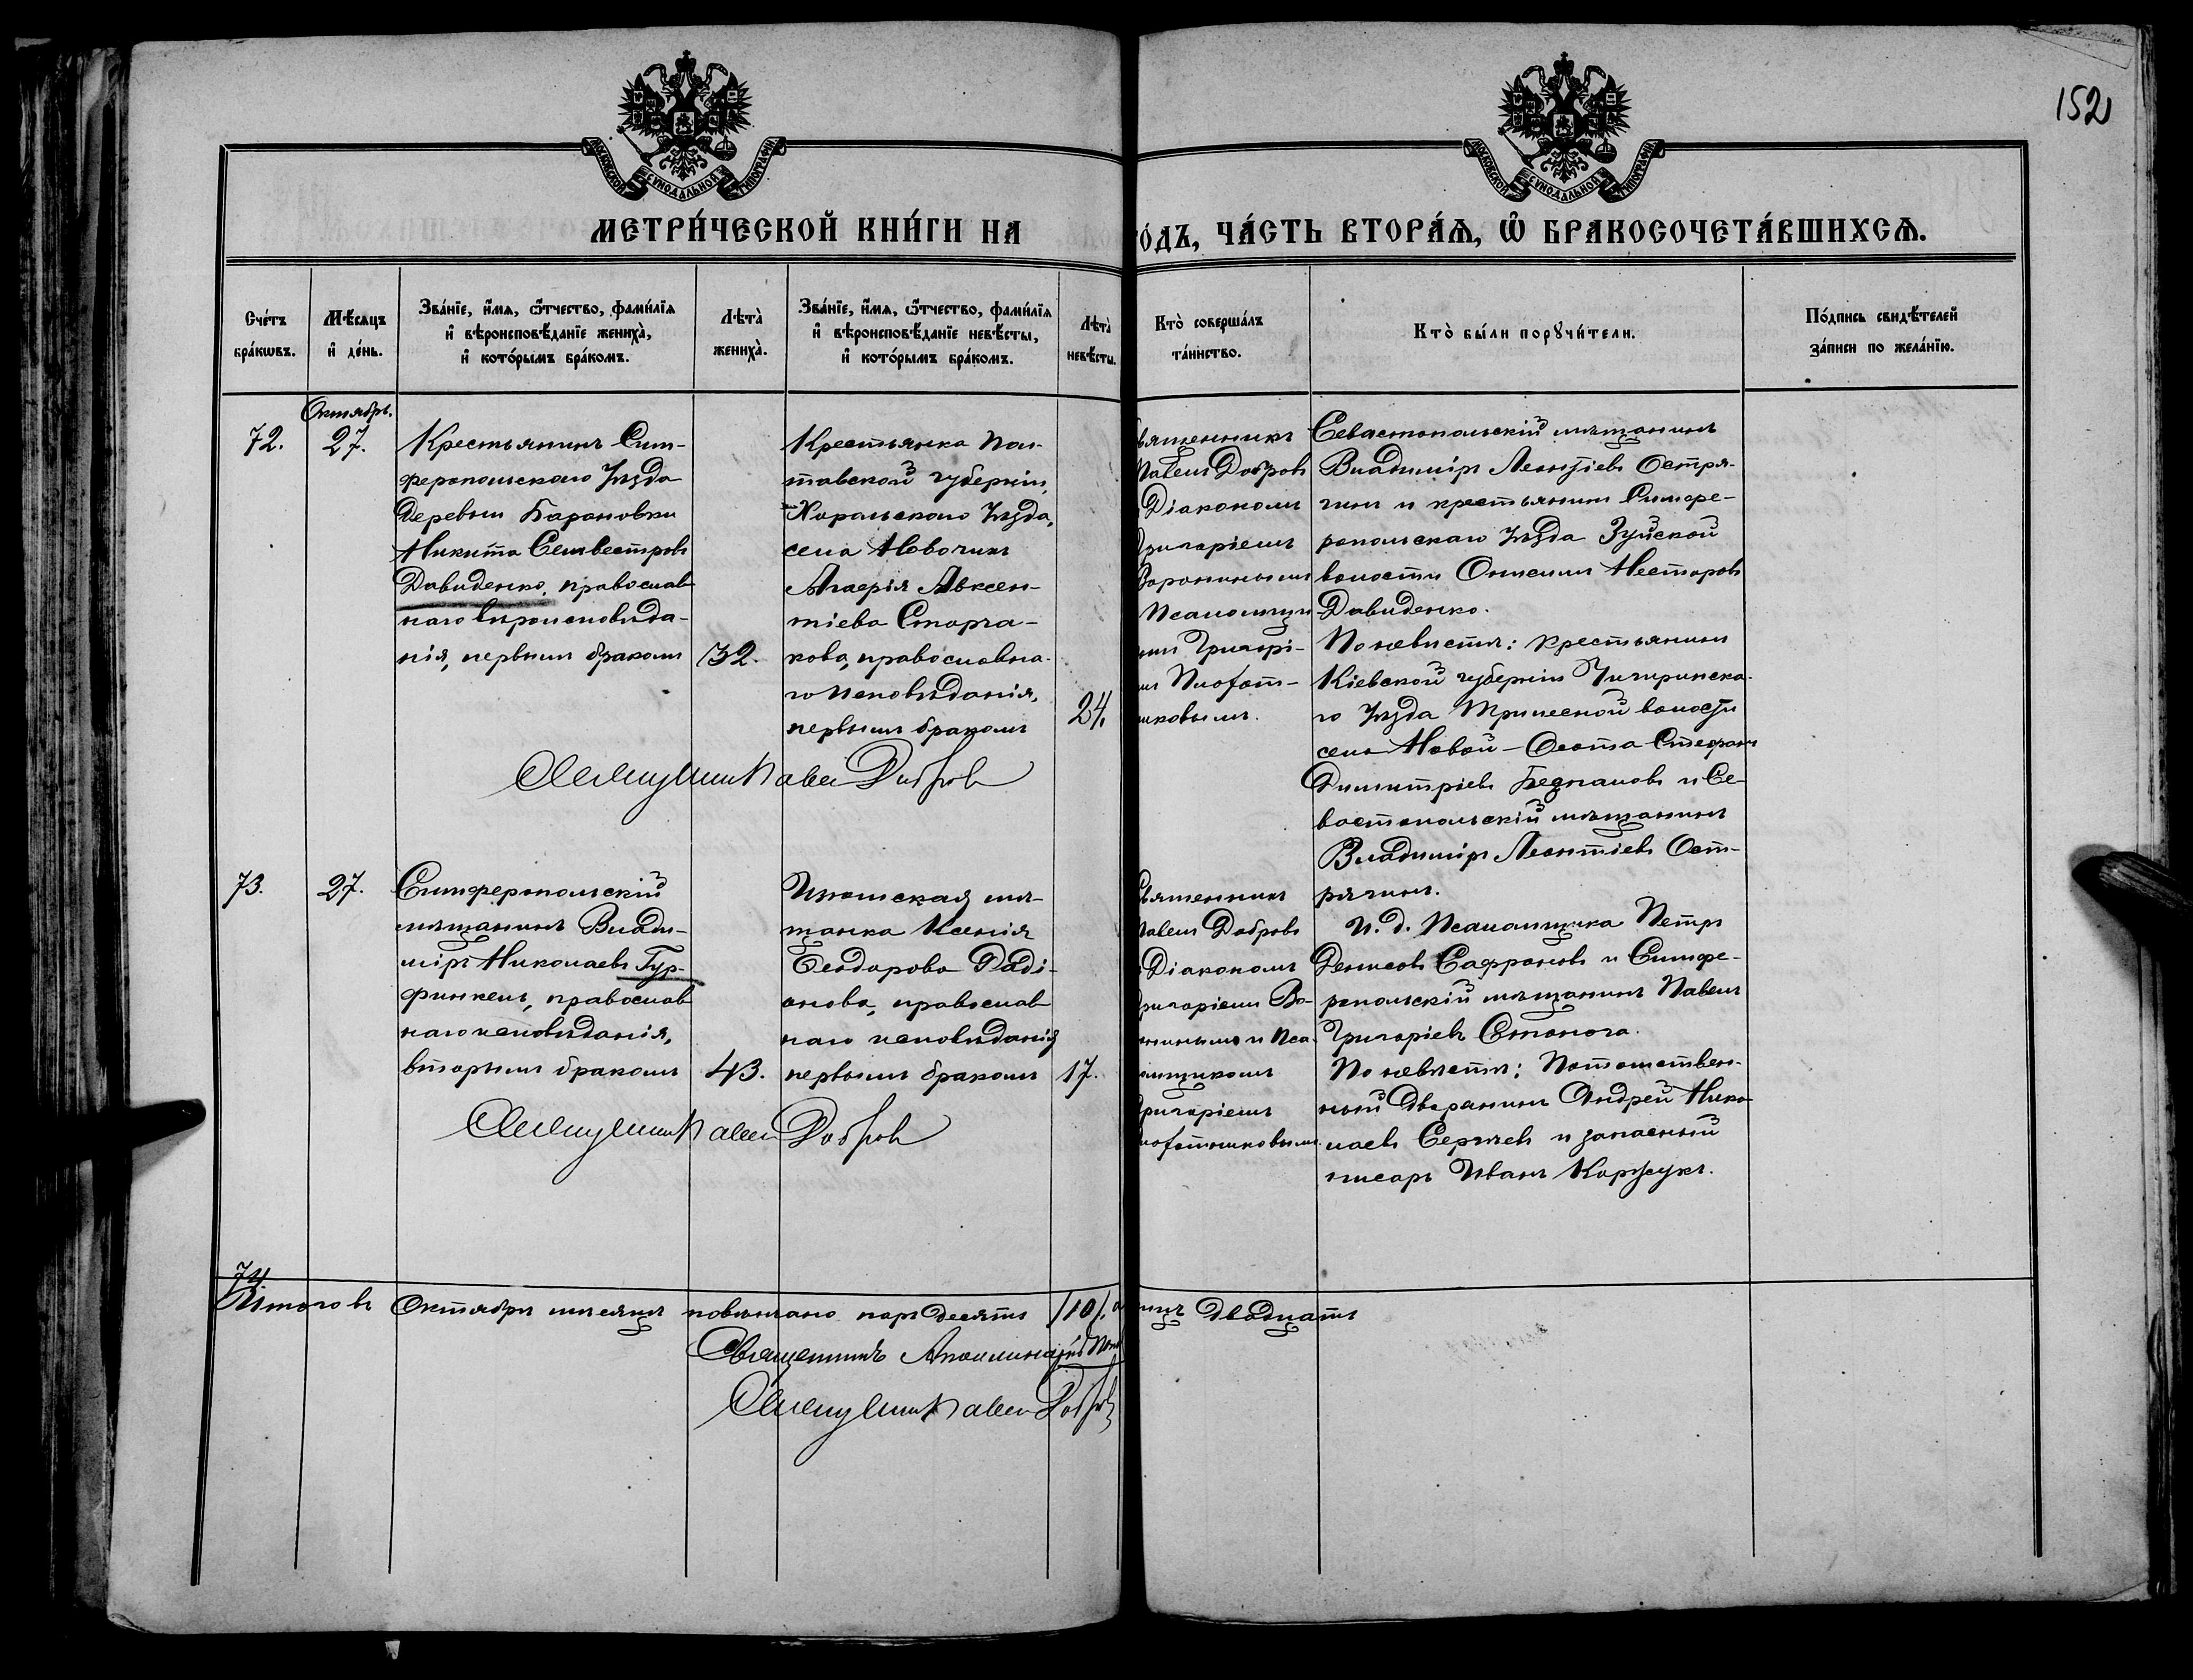 152
МОСКОВСКОЙ СѴНОДАЛЬНОЙ ТИПОГРАФІИ
МОСКОВСКОЙ СѴНОДАЛЬНОЙ ТИПОГРАФІИ
МЕТРИ́ЧЕСКОЙ КНИ́ГИ НА
О́ДЪ, ЧА́СТЬ ВТОРА́Ѧ, Ѡ҆ БРАКОСОЧЕТА́ВШИХСѦ.
Сче́тъ
бра́кѡвъ.
Мѣ́сѧцъ
и҆ де́нь.
Зва́нїе, и҆́мѧ, ѻ҆́тчество, фами́лїѧ
и҆ вѣроисповѣ́данїе жениха̀,
и҆ кото́рымъ бра́комъ.
Лѣта̀
жениха̀.
Зва́нїе, и҆́мѧ, ѻ҆́тчество, фами́лїѧ
и҆ вѣроисповѣ́данїе невѣ́сты,
и҆ кото́рымъ бра́комъ.
Лѣта̀
невѣ́сты.
Кто̀ соверша́лъ
та́инство.
Кто̀ бы́ли порꙋчи́тели.
По́дпись свидѣ́телей
за́писи по жела́нїю.
Октябрь.
72.
27.
Крестьянинъ Сим-
феропольскаго Уѣзда
Деревни Барановки
Никита Сельвестровъ
Давиденко, православ
наго вѣроисповѣда-
нія, первымъ бракомъ
32.
Крестьянка Пол-
тавской губерніи,
Хорольскаго Уѣзда,
села
Авксен-
тіева
православна-
го исповѣданія,
первымъ бракомъ
24.
вященникъ
Павелъ Добровъ
Діакономъ
Григоріемъ
Ворониннымъ
Псаломщи
Григорі-
Севастопольскій мѣщанинъ
Владиміръ Леонтіевъ Остря-
гинъ и крестьянинъ Симфе-
ропольскаго Уѣзда Зуйской
волости Онисимъ Несторовъ
Давиденко.
По невѣстѣ: крестьянинъ
Кіевской губерніи Чигиринска-
го Уѣзда волости
села Новой-Осота Стефанъ
Димитріевъ и Се-
вастопольскій мѣщанинъ
Владиміръ Леонтіевъ Ост-
рягинъ.
Священникъ Павелъ Добровъ
73.
27.
Симферопольскій
мѣщанинъ Влади-
міръ Николаевъ Гур-
финкель, православ
наго исповѣданія,
вторымъ бракомъ
43.
мѣ-
щанка Ксенія
Ѳеодорова Раді-
онова, православ
наго исповѣданія
первымъ бракомъ
17.
Священникъ
Павелъ Добровъ
Діакономъ
Григоріемъ Во-
и Пса-
ломщикомъ
Григоріемъ
И. д. Псаломщика Петръ
Денисовъ Сафроновъ и Симфе-
ропольскій мѣщанинъ Павелъ
Григоріевъ
По невѣстѣ: Потомствен-
ный Дворянинъ Андрей Нико-
лаевъ Сергѣевъ и запасный
писарь Иванъ
Священникъ Павелъ Добровъ
74.
Итого въ Октябрѣ мѣсяцѣ повѣнчано паръ десять /10/. двадцать
Священникъ Аполлинарій
Священникъ Павелъ Добровъ